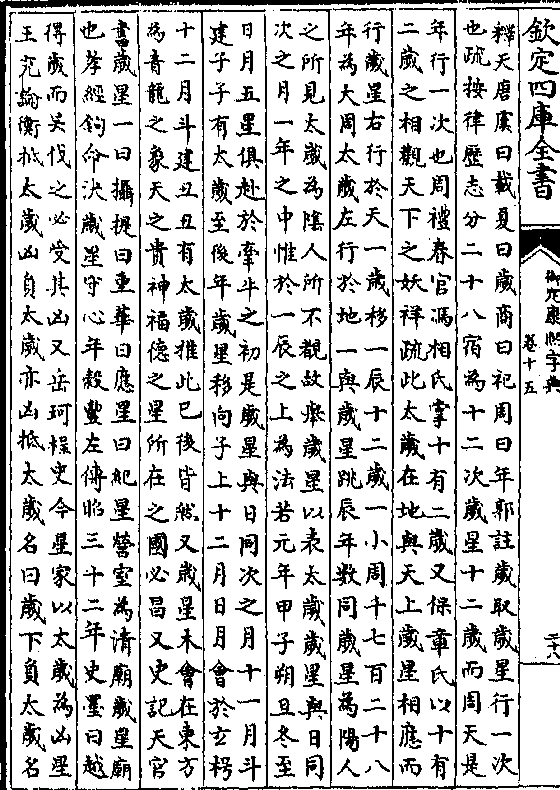 欽定四庫全書
御定康熙字典
卷十五
二十八
釋天唐虞曰載夏曰歲商曰祀周曰年郭註歲取歲星行一次
也疏按律歷志分二十八宿為十二次歲星十二歲而周天是
年行一次也周禮春官馮相氏掌十有二歲又保章氏以十有
二歲之相觀天下之妖祥疏此太歲在地與天上歲星相應而
行歲星右行於天一歲移一辰十二歲一小周千七百二十八
年為大周太歲左行於地一與歲星跳辰年數同歲星為陽人
之所見太歲為陰人所不覩故舉歲星以表太歲歲星與日同
次之月一年之中惟於一辰之上為法若元年甲子朔旦冬至
日月五星俱赴於牽牛之初是歲星與日同次之月十一月斗
建子子有太歲至後年歲星移向子上十二月日月會於玄枵
十二月斗建丑丑有太歲推此已後皆然又歲星木會在東方
為青龍之象天之貴神福德之星所在之國必昌又史記天官
書歲星一曰攝提曰重華曰應星曰紀星營室為清廟歲星廟
也孝經鉤命決歲星守心年穀豐左傳昭三十二年史墨曰越
得歲而吳伐之必受其凶又岳珂桯史今星家以太歲為凶星
王充論衡抵太歲凶負太歲亦凶抵太歲名曰歲下負太歲名